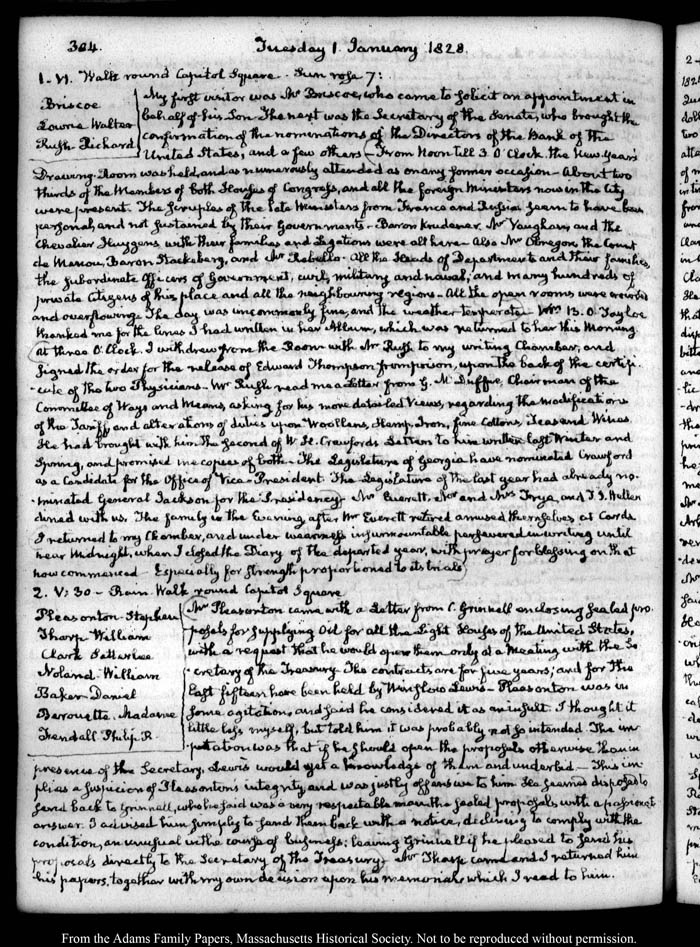 304.
Tuesday 1. January 1828.
1. VI. Walk round Capitol Square. Sun rose 7:
Briscoe
Lowrie Walter
Rush Richard
My first visitor was Mr Briscoe, who came to solicit an appointment in
behalf of his Son. The next was the Secretary of the Senate, who brought the
confirmation of the nominations of the Directors of the Bank of the
United States, and a few others. From Noon till 3. O'Clock the New Year's
Drawing-Room was held, and as numerously attended as on any former occasion. About two
thirds of the Members of both Houses of Congress, and all the foreign Ministers now in the City
were present. The scruples of the late Ministers from France and Russia seem to have been
personal, and not sustained by their Governments. Baron Krudener, Mr Vaughan, and the
Chevalier Huygens, with their families and Legations were all here. Also Mr Obregon, the Count
de Menou, Baron Stackelberg, and Mr Rebello. All the Heads of Departments and their families,
the subordinate Officers of Government; civil, military and naval; and many hundreds of
private Citizens of this place and all the neighbouring regions. All the open rooms were crowded
and overflowing. The day was uncommonly fine, and the weather temperate. Mrs B. O. Tayloe
thanked me for the lines I had written in her Album, which was returned to her this Morning.
At three O'Clock I withdrew from the Room with Mr Rush to my writing Chamber, and
signed the order for the release of Edward Thompson from prison, upon the back of the certifi-
-cate of the two Physicians. Mr Rush read me a Letter from G. McDuffie, Chairman of the
Committee of Ways and Means, asking for his more detailed views, regarding the modifications
of the Tariff, and alterations of duties upon Woollens, Hemp, Iron, fine Cottons, Teas and Wines.
He had brought with him the second of W. H. Crawford's Letters to him written last Winter and
Spring, and promised me copies of both. The Legislature of Georgia have nominated Crawford
as a Candidate for the Office of Vice-President. The Legislature of the last year had already no-
-minated General Jackson for the Presidency. Mr Everett, Mr and Mrs Frye, and T. J. Hellen
dined with us. The family in the Evening, after Mr Everett retired amused themselves at Cards.
I returned to my Chamber, and under weariness insurmountable persevered in writing until
near Midnight, when I closed the Diary of the departed year, with prayer for blessing on that
now commenced. Especially for strength proportioned to its trials.
2. V: 30. Rain. Walk round Capitol Square
Pleasonton Stephen
Tharp William
Clark Satterlee
Noland William
Baker Daniel
Derouette. Madame
Fendall Philip R.
Mr Pleasonton came with a Letter from C. Grinnell enclosing sealed pro-
-posals for supplying Oil for all the Light Houses of the United States,
with a request that he would open them only at a Meeting with the Se-
-cretary of the Treasury. The contracts are for five years; and for the
last fifteen have been held by Winslow Lewis. Pleasonton was in
some agitation, and said he considered it as an insult. I thought it
little less myself, but told him it was probably not so intended. The im-
-putation was that if he should open the proposals otherwise than in
presence of the Secretary, Lewis would get a knowledge of them and underbid. This im-
-plies a suspicion of Pleasonton's integrity, and was justly offensive to him. He seemed disposed to
send back to Grinnell, who he said was a very respectable man the sealed proposals, with a passionate
answer. I advised him simply to send them back with a notice, declining to comply with the
condition, as unusual in the course of business; leaving Grinnell if he pleased to send his
proposals directly to the Secretary of the Treasury. Mr Tharp came and I returned him
his papers, together with my own decision upon his memorial, which I read to him.
From the Adams Family Papers, Massachusetts Historical Society. Not to be reproduced without permission.